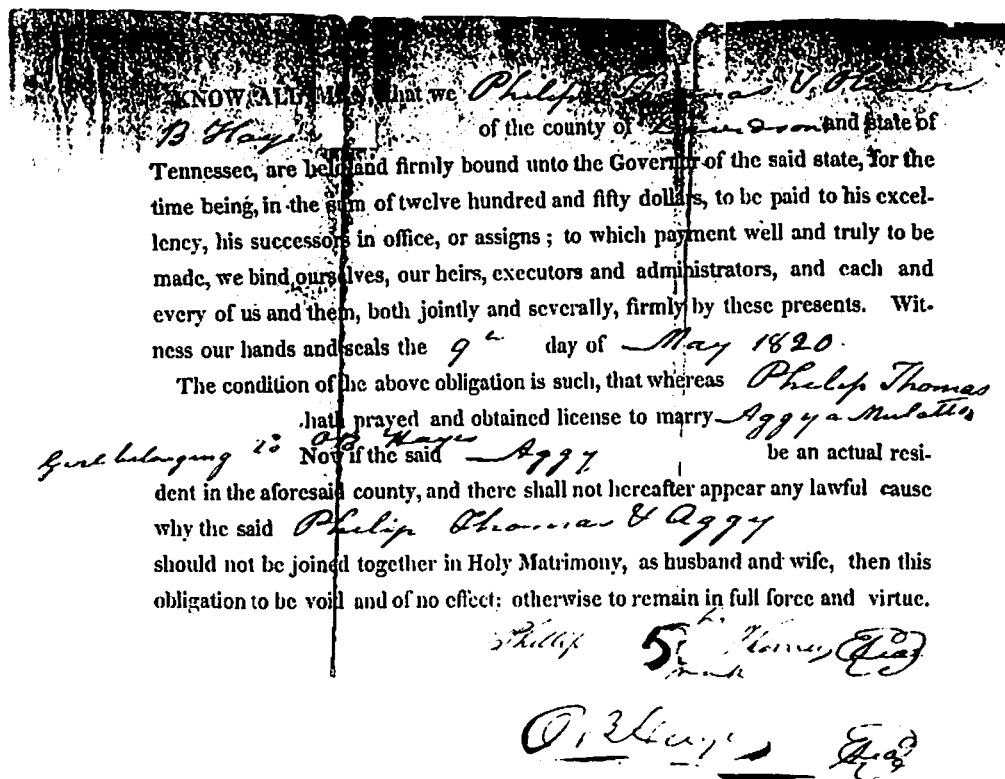 KNOW ALL MEN, that we Philip Thomas & Oliver
B Hayes of the county of Davidson and state of
Tennessee, are held and firmly bound unto the Governor of the said state, for the
time being, in the sum of twelve hundred and fifty dollars, to be paid to his excel-
lency, his successors in office, or assigns; to which payment well and truly to be
made, we bind ourselves, our heirs, executors and administrators, and each and
every of us and them, both jointly and severally, firmly by these presents. Wit-
ness our hands and seals the 9th day of May 1820.
The condition of the above obligation is such, that whereas Philip Thomas
hath prayed and obtained license to marry Aggy a Mulatto
Girl belonging to OB Hayes Now if the said Aggy be an actual resi-
dent in the aforesaid county, and there shall not hereafter appear any lawful cause
why the said Philip Thomas & Aggy
should not be joined together in Holy Matrimony, as husband and wife, then this
obligation to be void and of no effect: otherwise to remain in full force and virtue.
Phillip Thomas Seal
mark
O. B Hayes Seal